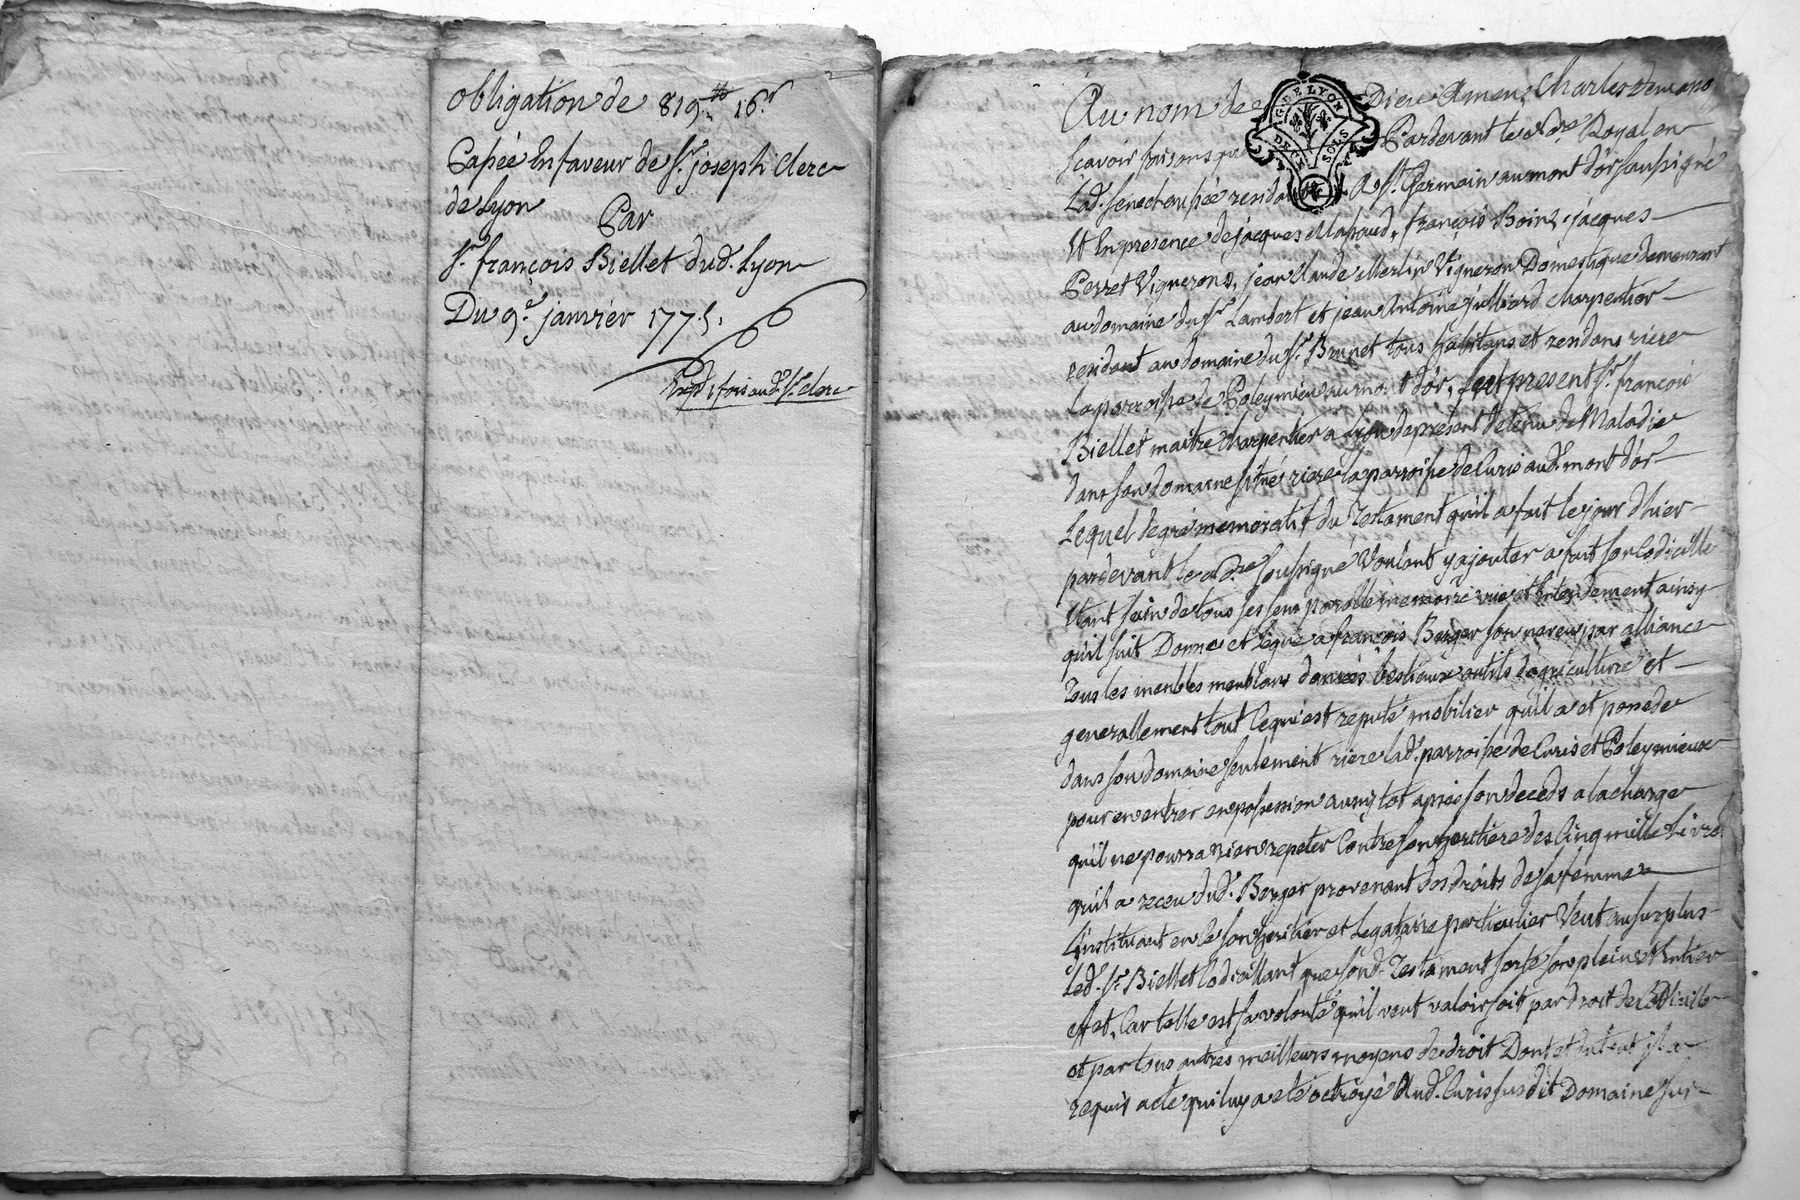 obligation de 819.# 16.s
Pasée En faveur de Sr. joseph Clerc
de Lyon
Par
Sr. françois Biellet dud. Lyon
Du 9.e janvier 1775.
Exp.d 1 fois aud. Sr. Clerc
Au nom de Dieu Amen,
G. DE LYON
DEUX SOLS
scavoir faisons que Pardevant le Nore. Royal en
Lad. senechaussée residant A St. Germain au mont d'or soussigné
Et En presence de jacques Maraud, françois Boin, jacques
Perret Vignerons, jean Claude Merlin Vigneron Domestique demeurant
au domaine du Sr. Lambert et jean Antoine julliard charpentier
residant au domaine du Sr. Brunet tous habitans et residans riere
la parroisse de Poleymieu au mont d'or, fut present Sr. françois
Biellet maitre charpentier a Lyon de present detenu de Maladie
dans son domaine situé riere la parroisse de Curis aud. mont d'or
Lequel de gré memoratif du Testament qu'il a fait le jour d'hier
pardevant le Nore. soussigné Voulant y ajouter a fait son Codicille
Etant sain de tous ses sens parolle memoire vüe et Entendement ainsy
qu'il suit Donne et Legue a françois Berger son neveu par alliance
Tous les meubles meublans denrées bestiaux outils d'agriculture et
generallement tout Ce qui est reputé mobilier qu'il a et possede
dans son domaine seulement riere lad. parroisse de Curis et Poleymieux
pour en entrer en possession aussytot aprés son deceds a la charge
qu'il ne pourra rien repeter Contre son heritiere des Cinq mille Livres
qu'il a receu dud. Berger provenant des droits de sa femme
L'instituant en Ce son heritier et Legataire particulier Veut au surplus
Led. Sr. Biellet Codicillant que sond. Testament sorte son plein et Entier
effet, Car telle est sa volonté qu'il veut valoir soit par droit de Codicille
et par tous autres meilleurs moyens de droit Dont et du tout il a
requis acte qui luy a eté octroyé Aud. Curis susdit Domaine sur